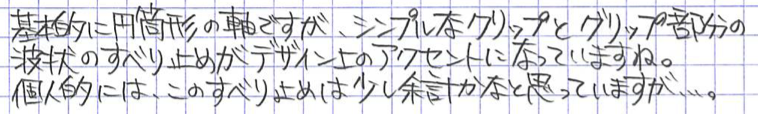 基本的に円筒形の軸ですが、シンプルなクリップとグリップ部分の
波状のすべり止めがデザイン上のアクセントになっていますね。
個人的には、このすべり止めは少し余計かなと思っていますが…。